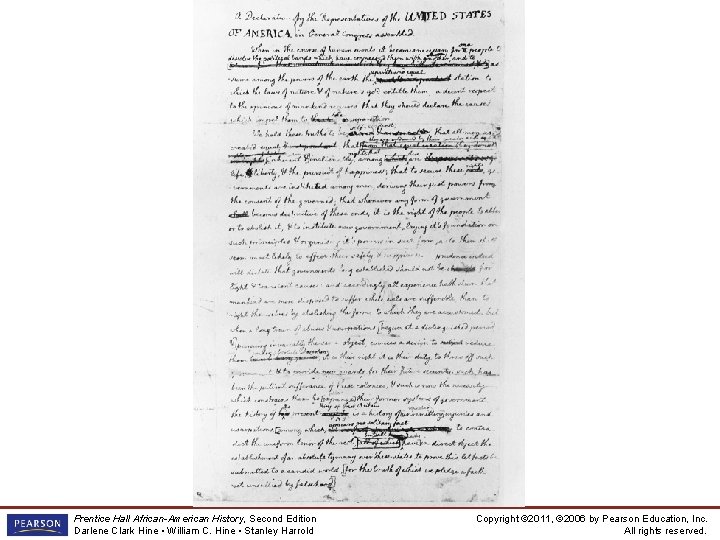 a Declaration by the Representatives of the UNITED STATES
OF AMERICA, in General Congress assembled.
When in the course of human events it becomes necessary for one people to
dissolve the political bands which have connected them with another, and to
sume among the powers of the earth the separate and equal station to
which the laws of nature & of nature's god entitle them, a decent respect
to the opinions of mankind requires that they should declare the causes
which impel them to the separation.
We hold these truths to be self-evident, that all men are
created equal
inherent & inalienable among which are
life, liberty, & the pursuit of happiness; that to secure these rights, go
vernments are instituted among men, deriving their just powers from
the consent of the governed; that whenever any form of government
becomes destructive of these ends, it is the right of the people to alter
or to abolish it, & to institute new government, laying it's foundation on
such principles & organising it's powers in such form, as to them shall
seem most likely to effect their safety & happiness. prudence indeed
will dictate that governments long established should not be changed for
light & transient causes: and accordingly all experience hath shewn that
mankind are more disposed to suffer while evils are sufferable, than to
right themselves by abolishing the forms to which they are accustomed. but
when a long train of abuses & usurpations [begun at a distinguished period
& pursuing invariably the same object, evinces a design to reduce
them under absolute Despotism, it is their right, it is their duty, to throw off such
& to provide new guards for their future security. such has
been the patient sufferance of these colonies; & such is now the necessity
which constrains them to [expunge] their former systems of government.
the history of the present King of Great Britain is a history of injuries and
usurpations, [among which appears no solitary fact to contra-
dict the uniform tenor of the rest have in direct object the
establishment of an absolute tyranny over these states. to prove this let facts be
submitted to a candid world [for the truth of which we pledge a faith
yet unsullied by falsehood]
PEARSON
Prentice Hall African-American History, Second Edition
Darlene Clark Hine • William C. Hine • Stanley Harrold
Copyright ©2011, ©2006 by Pearson Education, Inc.
All rights reserved.